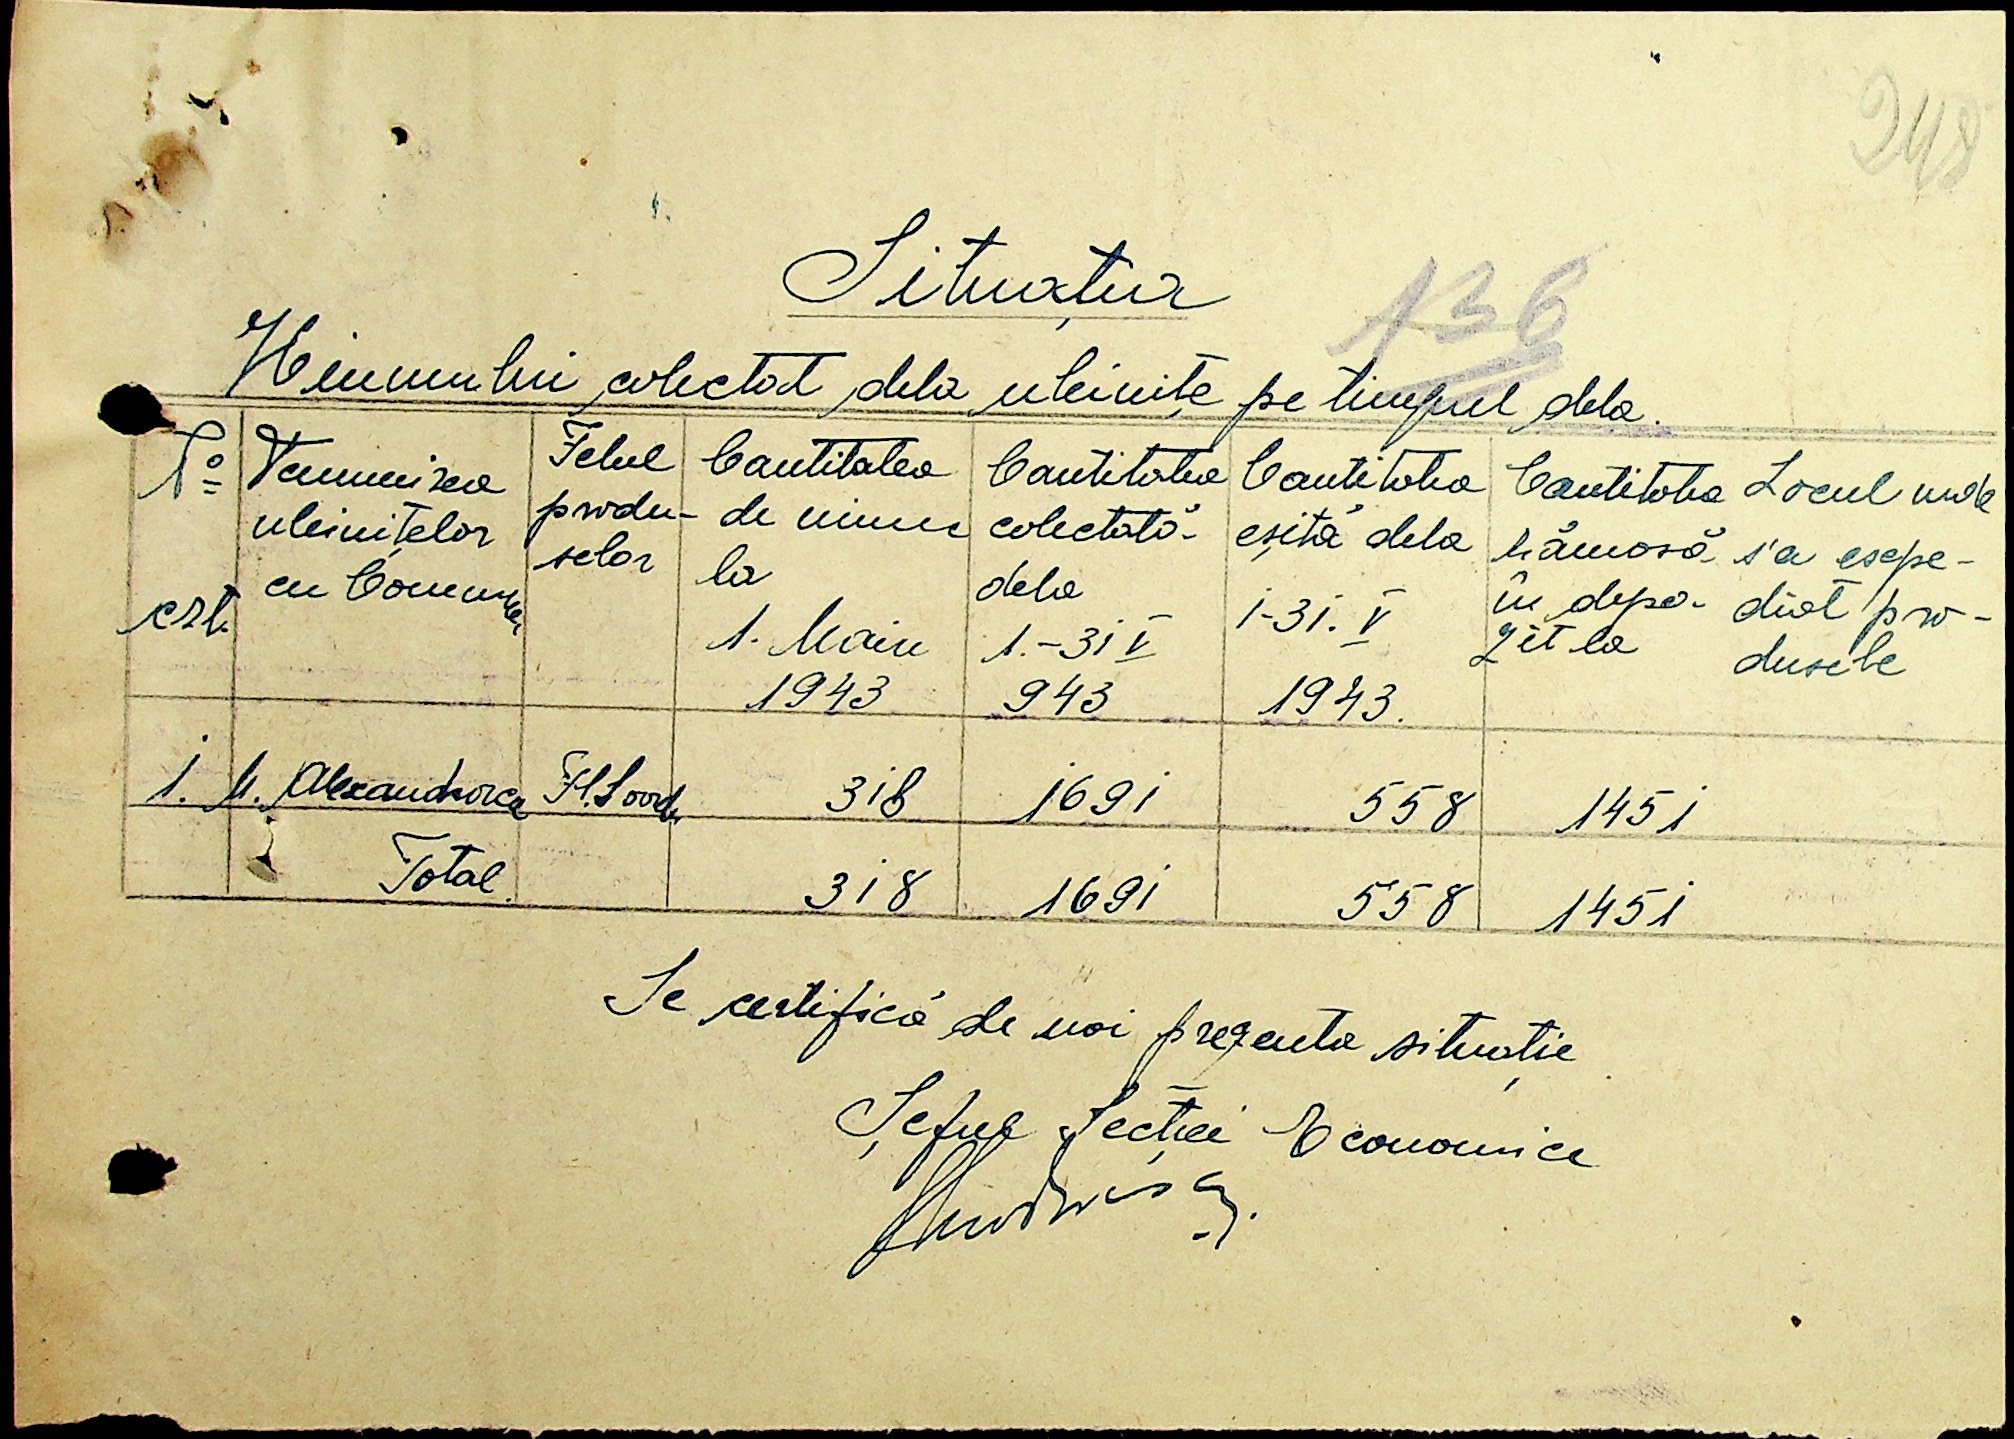 248
Situația
136
Uleiului colectat dela uleinițe pe timpul dela.
No crt.
Denumirea uleinițelor cu Comunei
Felul produ- selor
Cantitatea de uleiu la 1. Maiu 1943
Cantitatea colectată dela 1.-31 V 943
Cantitatea eșită dela 1-31. V 1943.
Cantitatea rămasă în depo- zit la
Locul unde s'a espe- diat pro- dusele
1. M. Alexandrovca Fl. Soarelui 318 1691 558 1451
Total. 318 1691 558 1451
Se certifică de noi prezenta situație
Șeful Secției Economice